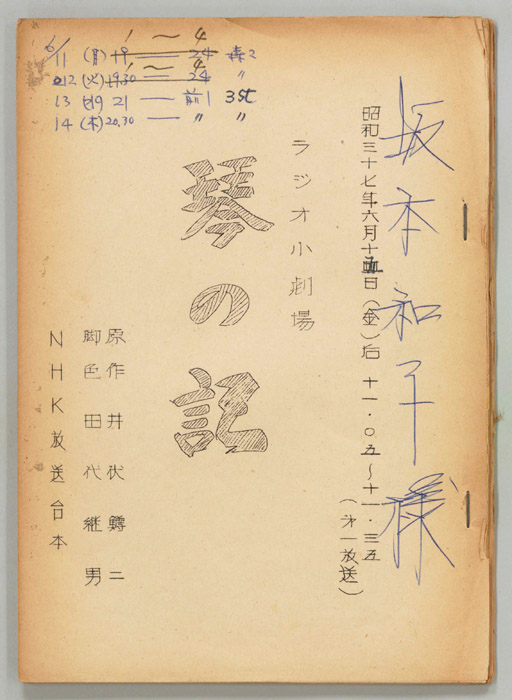 坂本和子様
昭和三十七年六月十五日（金）后 十一・〇五〜十一・三五
（才一放送）
ラジオ小劇場
琴の記
原作 井伏鱒二
脚色 田代継男
NHK放送台本
6/11 (月)
1〜4
24
12 (火) 9.30 — 24 〃
1〜4
13 21 — 前1 3st
14 (木) 20.30 — 〃 〃